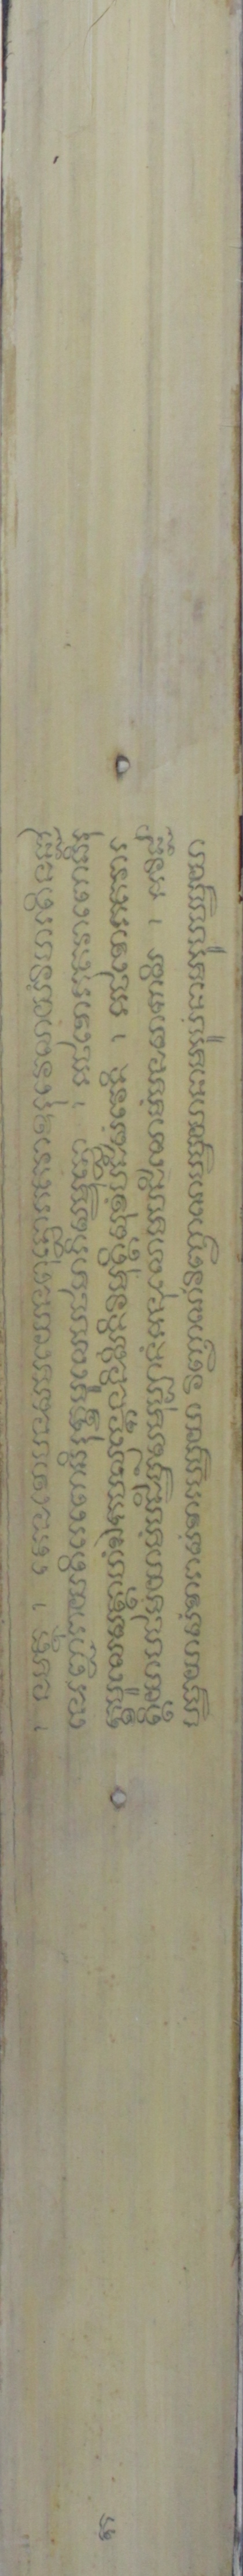 ។ នមត្ថុ ។ តេនខោបនសមយេនពុទ្ធោភគវាឧរុវេលាយំវិហរតិនជ្ជា
នេរញ្ជរាយតីរេពោធិរុក្ខមូលេបឋមាភិសម្ពុទ្ធោ ។ អថខោភគវាពោធិរុ
ក្ខមូលេសត្តាហំឯកបល្លង្កេននិសីទិវិមុត្តិសុខំបដិសំវេទិ ។ អថខោភគវារ
ត្តិយាបឋមំយាមំបដិច្ចសមុប្បាទំអនុលោមបដិលោមំមនសាកាសិ ។ អវិជ្ជា
បច្ចយាសំខារាសំខារបច្ចយា វិញ្ញាណំវិញ្ញាណបច្ចយានាមរូបំនាមរូបបច្ចយា